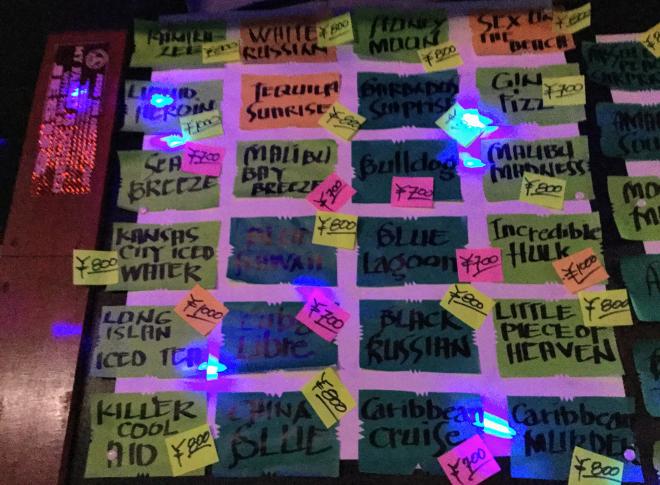 KAMIKA
ZEE
¥800
WHITE
RUSSIAN
¥800
HONEY
MOON
¥800
SEX ON
THE
BEACH
¥800
LIQUID
HEROIN
¥1000
TEQUILA
SUNRISE
¥800
BARBADOS
SURPRISE
GIN
FIZZ
¥700
SEA
BREEZE
¥700
MALIBU
BAY
BREEZE
¥700
Bulldog
¥700
MALIBU
MADNESS
¥800
KANSAS
CITY ICED
WATER
¥800
BLUE
HAWAII
¥800
BLUE
Lagoon
¥700
Incredible
HULK
¥1000
LONG
ISLAN
ICED TEA
¥1000
Cuba
Libre
¥700
BLACK
RUSSIAN
¥800
LITTLE
PIECE OF
HEAVEN
¥800
KILLER
COOL
AID
¥800
CHINA
BLUE
¥800
Caribbean
Cruise
¥700
Caribbean
MURDER
¥800